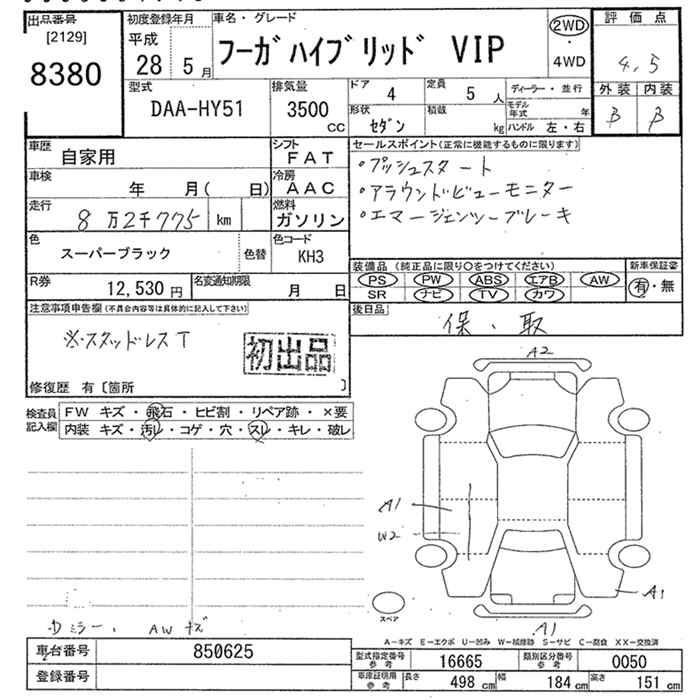 出品番号
[2129]
8380
初度登録年月
平成
28 5月
車名・グレード
フーガハイブリッド VIP
2WD
・
4WD
評価点
4.5
外装 内装
B B
型式
DAA-HY51
排気量
3500
CC
ドア
4
定員
5人
形状
セダン
積載
kg
ディーラー・並行
モデル年式 年
ハンドル 左・右
車歴
自家用
シフト
FAT
車検
年 月( 日)
冷房
AAC
走行
8万2千775 km
燃料
ガソリン
色
スーパーブラック
色替
色コード
KH3
R券
12,530円
名変通知期限
月 日
セールスポイント(正常に機能するものに限ります)
・プッシュスタート
・アラウンドビューモニター
・エマージェンシーブレーキ
装備品 (純正品に限り○をつけてください)
PS PW ABS エアB AW
SR ナビ TV カワ
新車保証書
有・無
後日品
保、取
注意事項申告欄(不具合内容等は具体的に記入して下さい)
※・スタッドレスT
初出品
修復歴 有〔箇所 〕
検査員記入欄
FW キズ・飛石・ヒビ割・リペア跡・×要
内装 キズ・汚レ・コゲ・穴・スレ・キレ・破レ
A2
A1
W2
A1
A1
スペア
ミラー、 AWキズ
A-キズ E-エクボ U-凹み W-補修跡 S-サビ C-腐食 XX-交換済
車台番号
850625
登録番号
型式指定番号
参考
16665
類別区分番号
参考
0050
車庫証明用
参考
長さ 498cm 幅 184cm 高さ 151cm